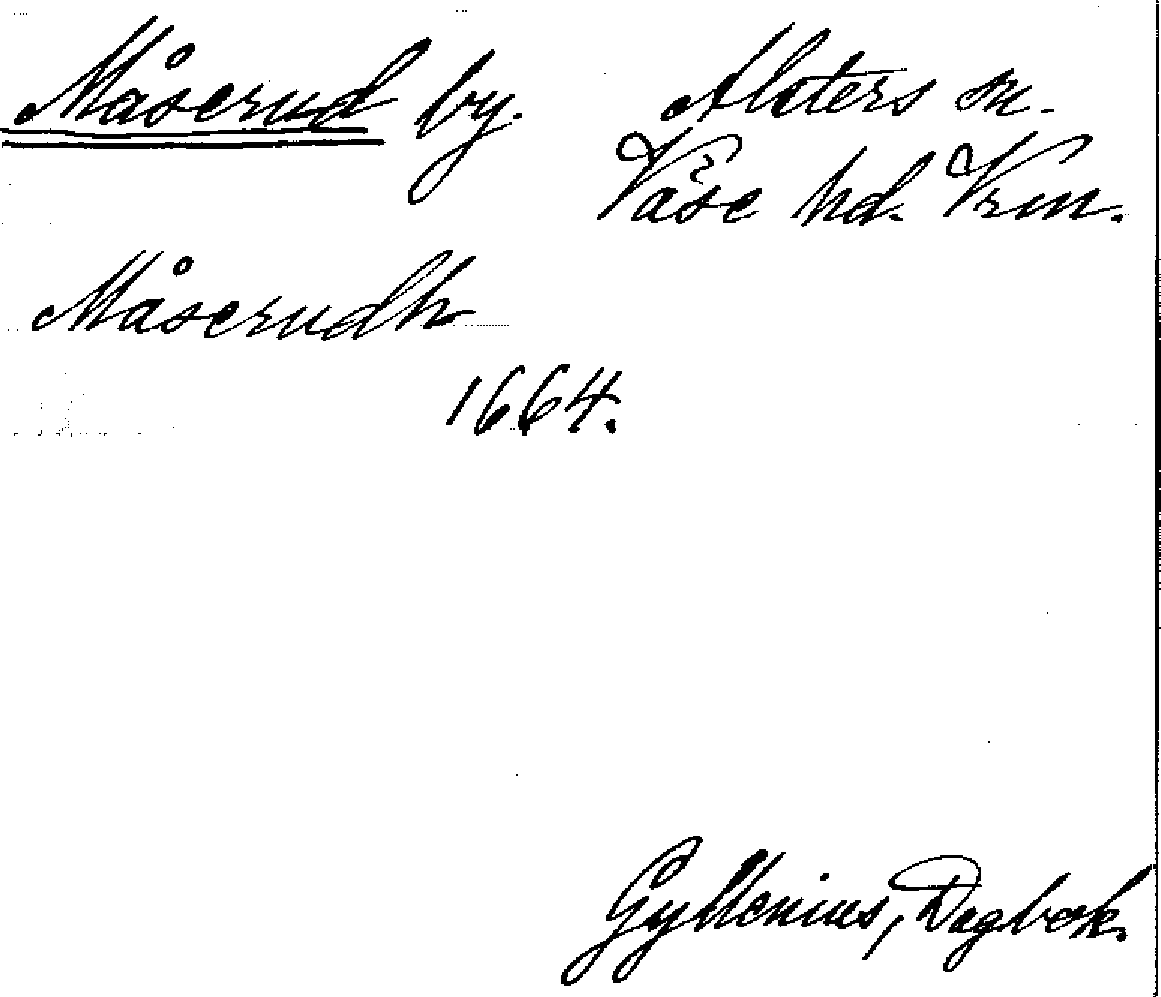 Måserud by.
Alsters sn.
Väse hd. Vrm.
Måserudh
1664.
Gyllenius, Dagbok.